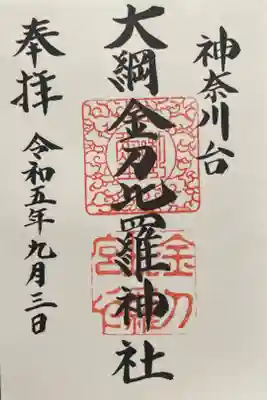 神奈川台
大綱金刀比羅神社
奉拝
令和五年九月三日